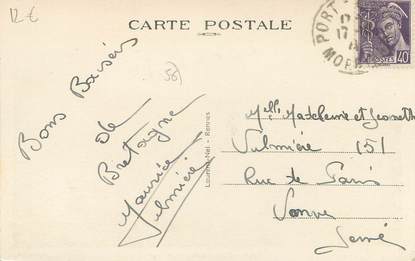 12 €
CARTE POSTALE
PORT
17
MOR
POSTES
40
56
Bons Baisers
de
Bretagne
Maurice
Vulmière
Laurent-Nel - Rennes
Melles Madeleine et Jeannette
Vulmière 151
Rue de Paris
Vanves
Seine